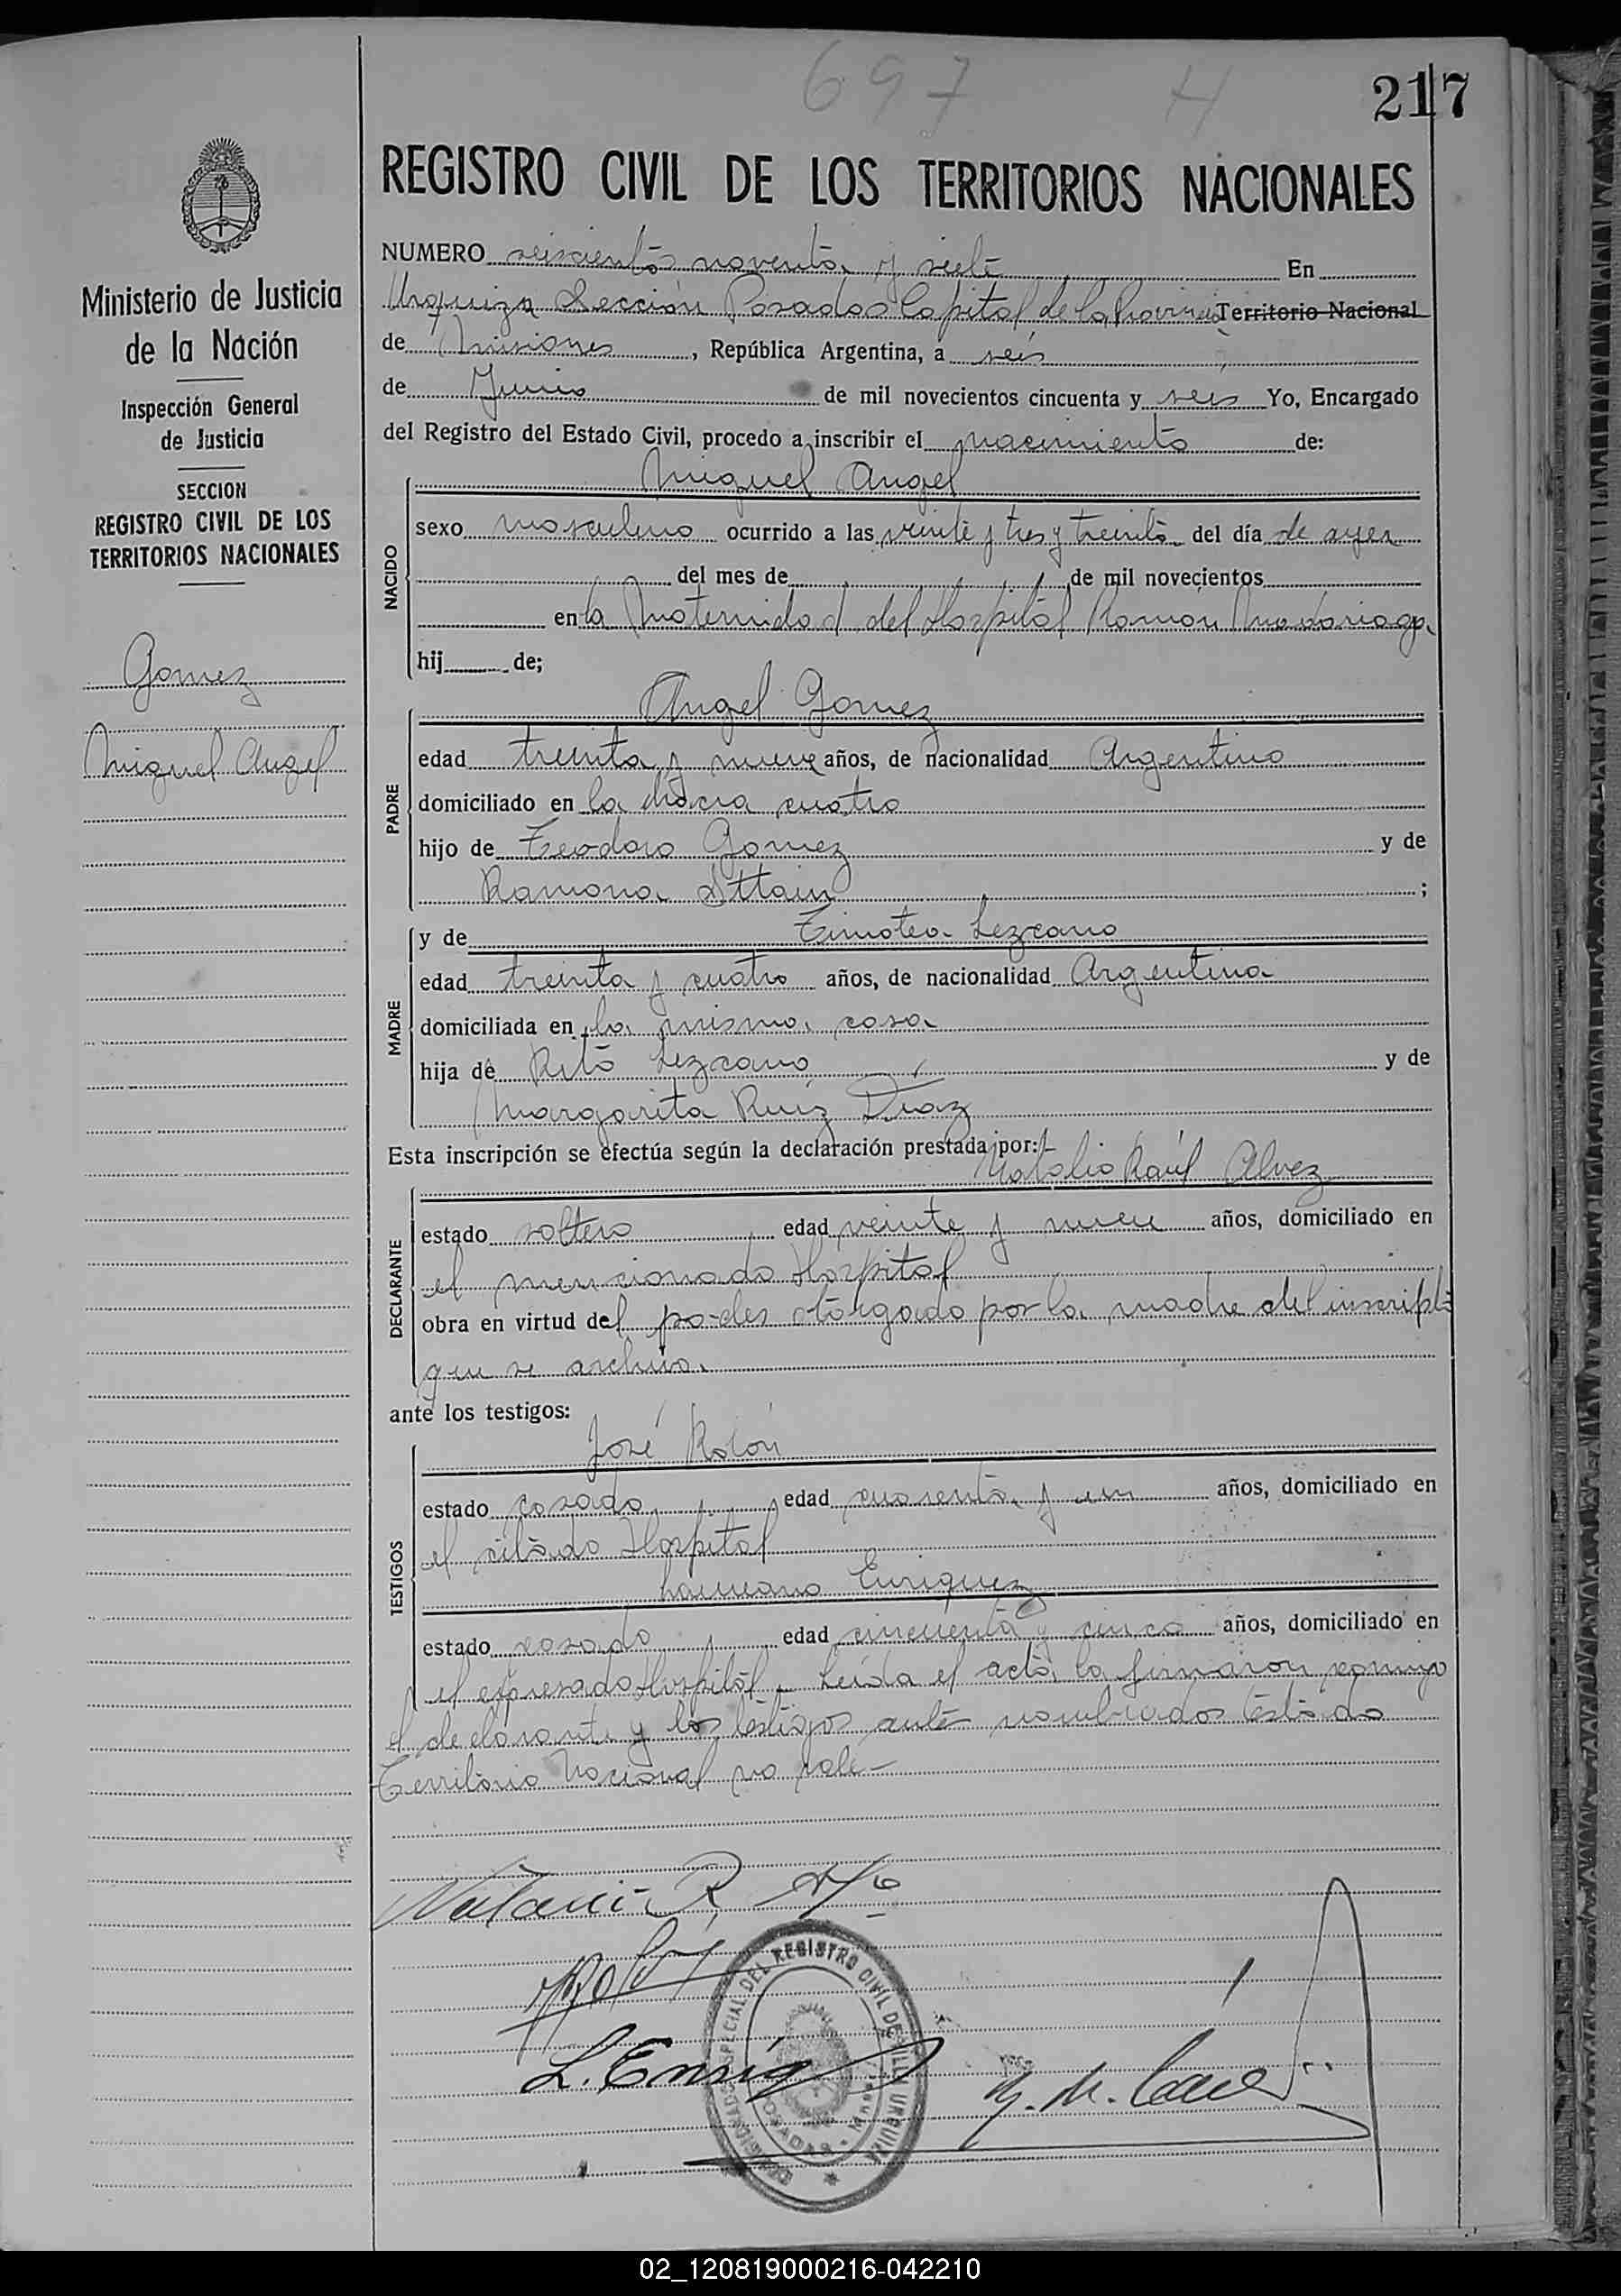 697 H
217
REGISTRO CIVIL DE LOS TERRITORIOS NACIONALES
Ministerio de Justicia
de la Nación
Inspección General
de Justicia
SECCION
REGISTRO CIVIL DE LOS
TERRITORIOS NACIONALES
Gomez
Miguel Angel
NUMERO seiscientos noventa y siete En
Urquiza Sección Posadas Capital de la Provincia Territorio Nacional
de Misiones, República Argentina, a seis
de Junio de mil novecientos cincuenta y seis Yo, Encargado
del Registro del Estado Civil, procedo a inscribir el nacimiento de:
NACIDO
Miguel Angel
sexo masculino ocurrido a las veinte y tres y treinta del día de ayer
del mes de de mil novecientos
en la Maternidad del Hospital Ramón Madariaga
hij de;
PADRE
Angel Gomez
edad treinta y nueve años, de nacionalidad Argentino
domiciliado en la chacra cuatro
hijo de Teodoro Gomez y de
Ramona ;
MADRE
y de Timotea Lezcano
edad treinta y cuatro años, de nacionalidad Argentina
domiciliada en la misma casa
hija de Rito Lezcano y de
Margarita Ruiz Díaz
Esta inscripción se efectúa según la declaración prestada por:
DECLARANTE
Natalio Raúl Alvez
estado soltero edad veinte y nueve años, domiciliado en
el mencionado Hospital
obra en virtud del poder otorgado por la madre del inscripto
que se archiva.
ante los testigos:
TESTIGOS
José Rolón
estado casado edad cuarenta y un años, domiciliado en
el citado Hospital
Laureano Enriquez
estado casado edad cincuenta y cinco años, domiciliado en
el expresado Hospital. Leída el acta la firmaron conmigo
el declarante y los testigos ante nombrados testado
Territorio Nacional no vale-
L. Enriq
REGISTRO CIVIL DE VILLA URQUIZA
POSADAS
02_120819000216-042210